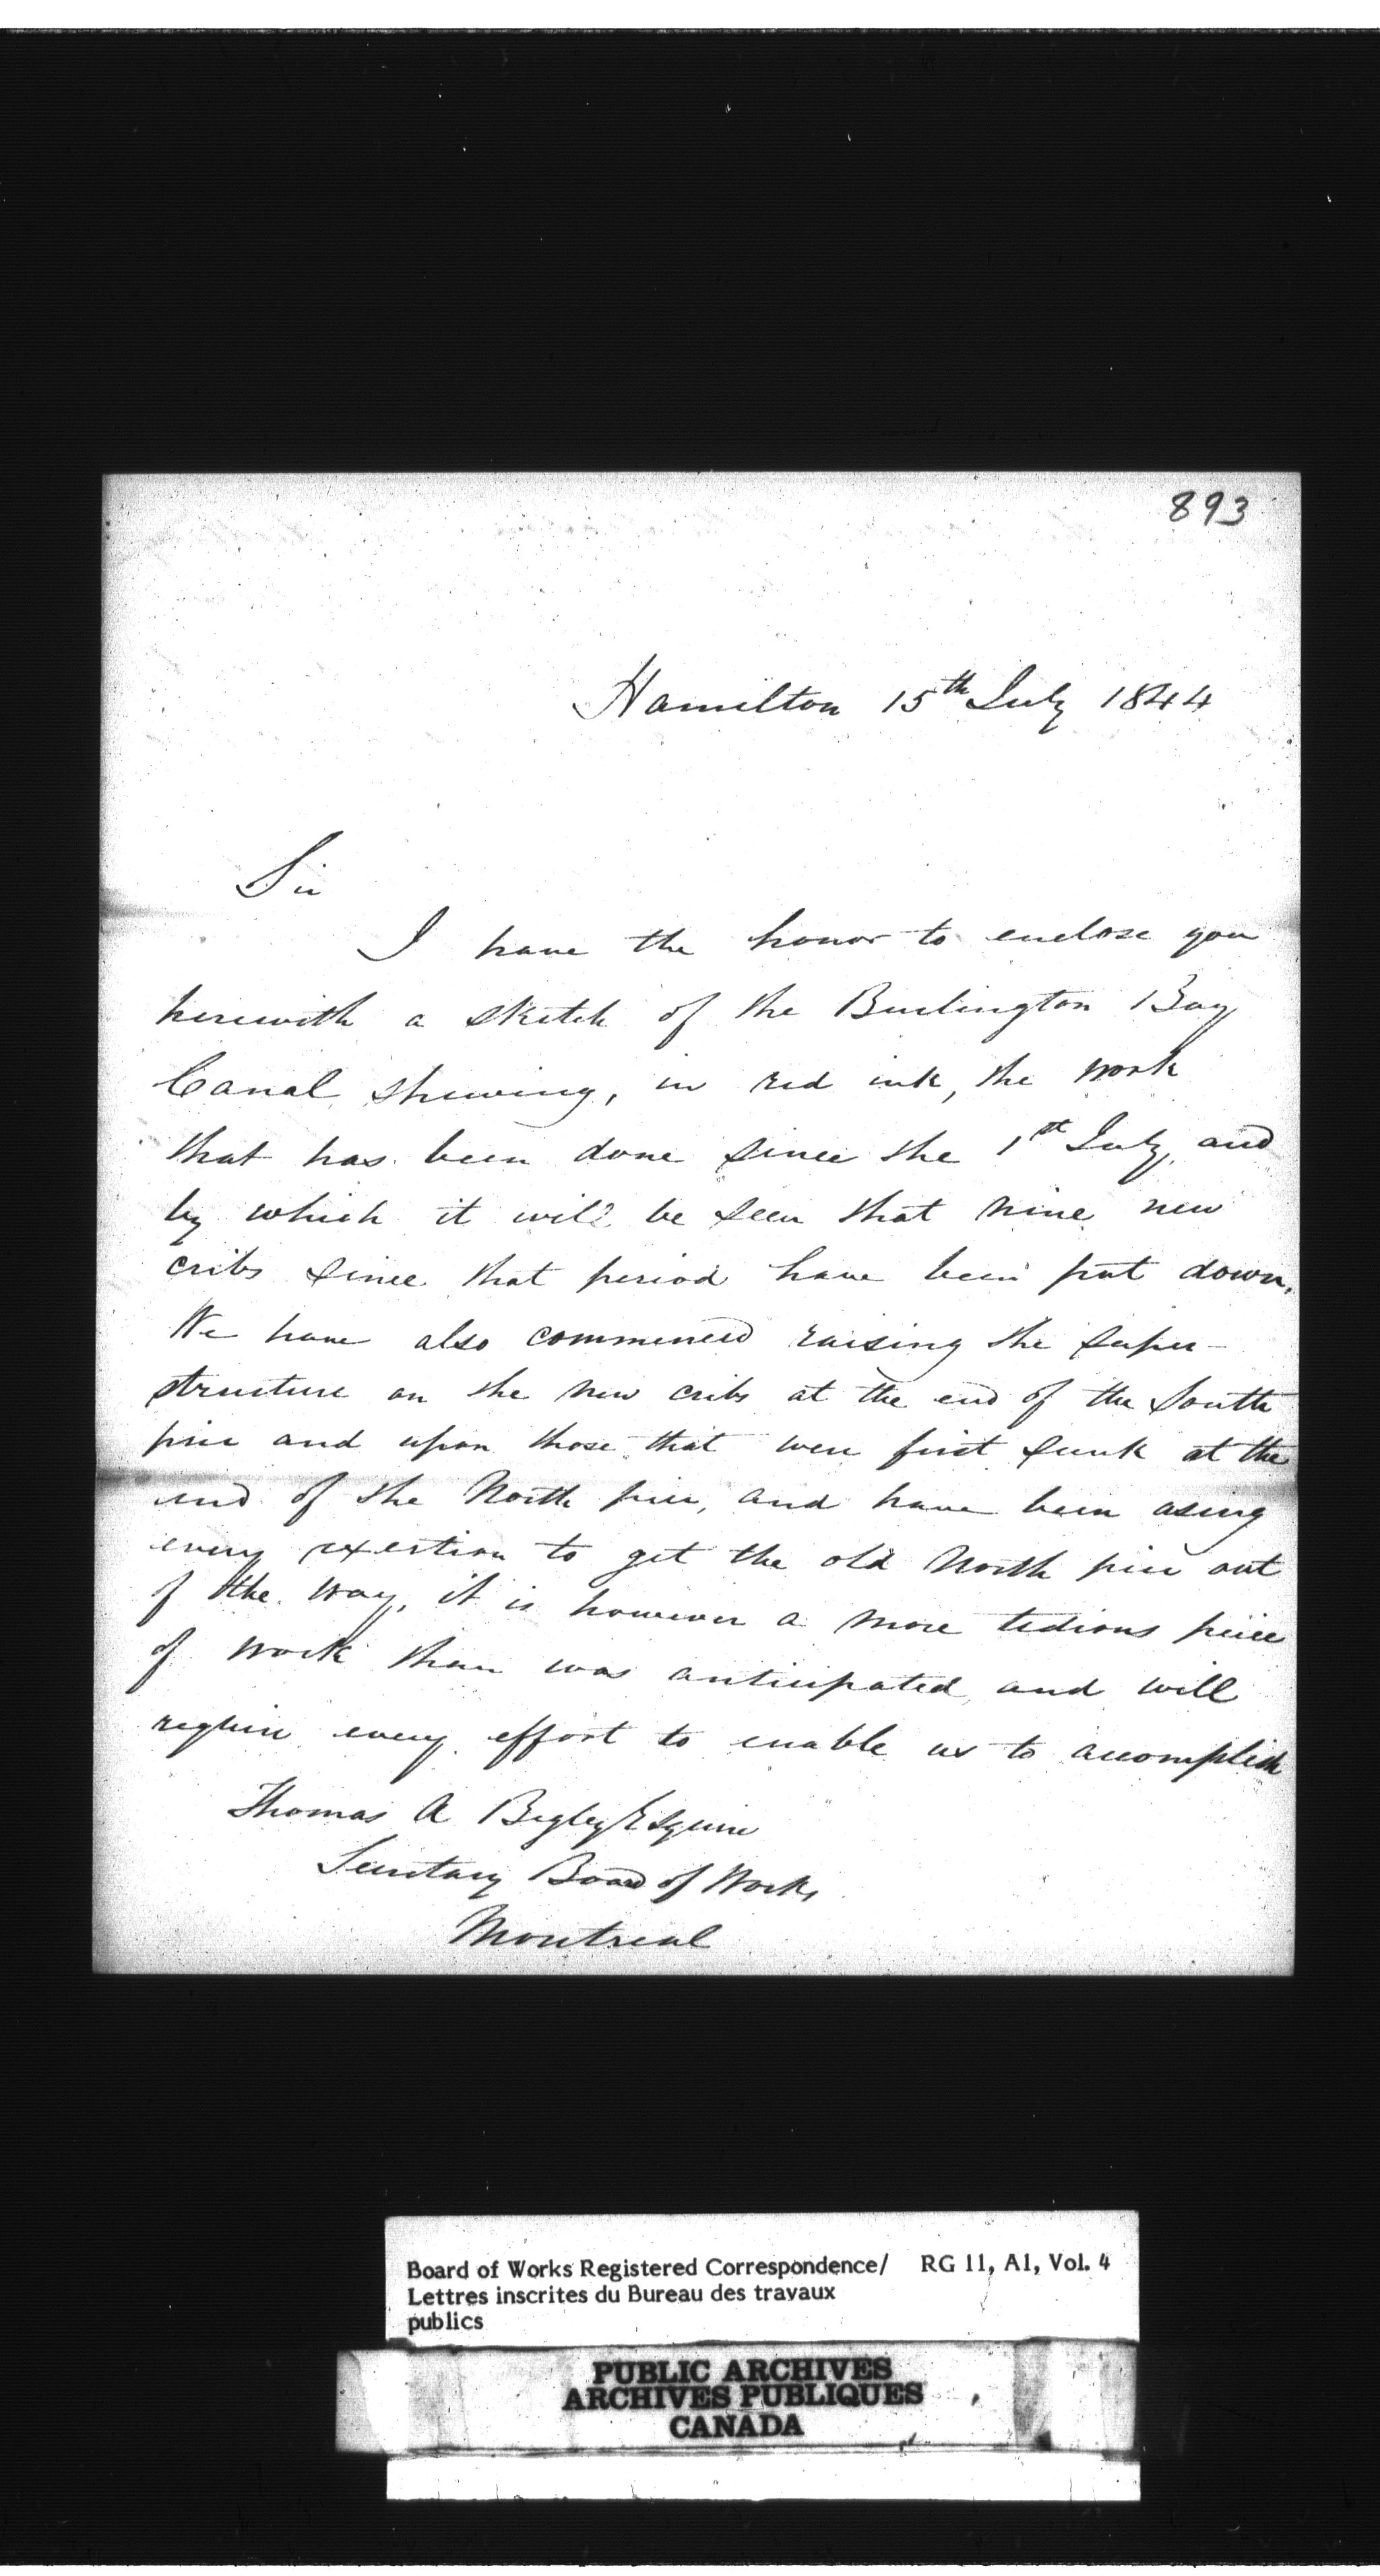 893
Hamilton 15th July 1844
Sir
I have the honor to enclose you
herewith a sketch of the Burlington Bay
Canal shewing, in red ink, the work
that has been done since the 1st July, and
by which it will be seen that nine new
cribs since that period have been put down.
We have also commenced raising the super-
structure on the new cribs at the end of the South
pier and upon those that were first sunk at the
end of the North pier, and have been using
every exertion to get the old North pier out
of the way, it is however a more tedious piece
of work than was anticipated and will
require every effort to enable us to accomplish
Thomas A Begley Esquire
Secretary Board of Works
Montreal
Board of Works Registered Correspondence/ RG 11, A1, Vol. 4
Lettres inscrites du Bureau des travaux
publics
PUBLIC ARCHIVES
ARCHIVES PUBLIQUES
CANADA